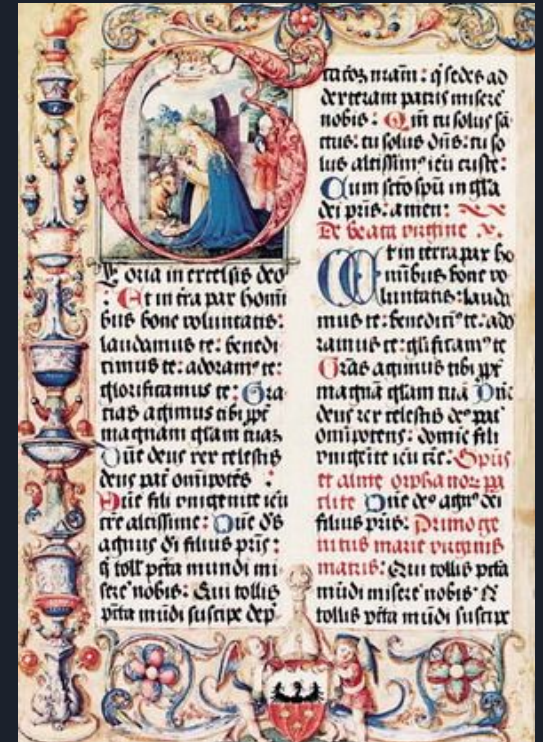 oria in excelsis deo
: Et in tra pax homi
bus bone voluntatis:
laudamus te: benedi
cimus te: adoram9 te:
glorificamus te: Gra
tias agimus tibi ppt
magnam glam tuaz
Dne deus rex celestis
deus pat omipotes :
Dne fili unigenite ieu
xre altissime: Dne ds
agnus di filius pris:
q toll pcta mundi mi
sere nobis: Qui tollis
pcta mudi suscipe dep
nram: q sedes ad
dexteram patris misere
nobis: Qm tu solus sa
ctus: tu solus dns: tu so
lus altissim9 ieu criste:
Cum scto spu in gla
dei pris: amen:
De beata virgine
Et in terra pax ho
nibus bone vo
luntatis: lauda
mus te: benedici9 te: ado
ramus te: glificam9 te
Gras agimus tibi ppt
magna glam tua Dne
deus rex celestis de9 pat
omipotens: domine fili
unigenite ieu
et alme orphanor pa
clite Dne de9 agn9 dei
filius pris: Primoge
nitus marie virginis
matris: Qui tollis pcta
mudi misere nobis
tollis pcta mudi suscipe